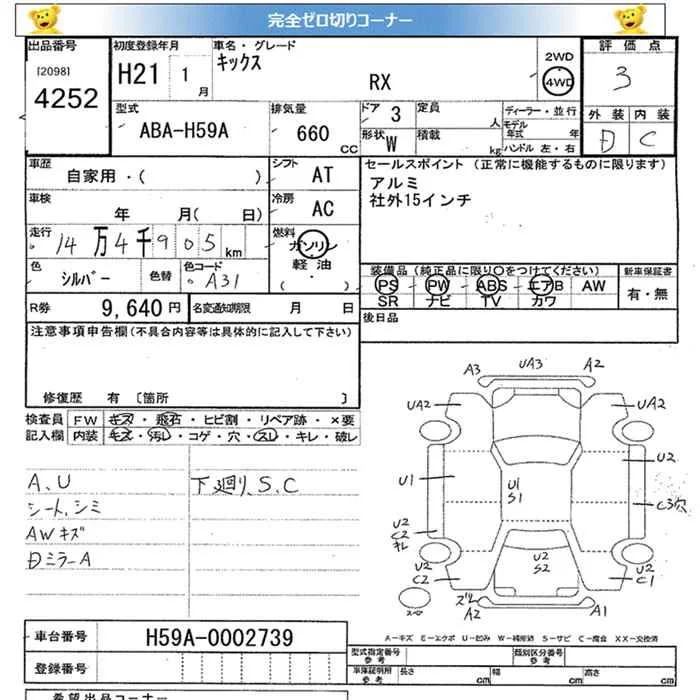 完全ゼロ切りコーナー
出品番号 初度登録年月 車名・グレード 評価点
[2098] H21 1 月 キックス RX 2WD 4WD 3
4252
型式 排気量 ドア 3 定員 人 ディーラー・並行 外装 内装
ABA-H59A 660 CC 形状 W 積載 kg モデル年式 年 D C
ハンドル 左・右
車歴 シフト セールスポイント (正常に機能するものに限ります)
自家用・( ) AT アルミ
車検 冷房 社外15インチ
年 月( 日) AC
走行 14万4千905km 燃料 ガソリン
軽油・( )
色 シルバー 色替 色コード A31
装備品(純正品に限り○をつけてください) 新車保証書
PS PW ABS エアB AW 有・無
SR ナビ TV カワ
R券 9,640円 名変通知期限 月 日 後日品
注意事項申告欄(不具合内容等は具体的に記入して下さい)
修復歴 有 〔箇所 〕
検査員記入欄 FW キズ・飛石・ヒビ割・リペア跡・×要
内装 キズ・汚レ・コゲ・穴・スレ・キレ・破レ
A、U 下廻り、S、C
シート、シミ
AWキズ
Dミラ-A
A3 UA3 A2
UA2 UA2
U1 U1 S1 U2
C3穴
U2 C2 キレ
U2 C2 U2 S2 U2 C1
ズレ A2 A1
A－キズ E－エクボ U－凹み W－補修跡 S－サビ C－腐食 XX－交換済
車台番号 H59A-0002739
登録番号
型式指定番号 参考 類別区分番号 参考
車庫証明用 参考 長さ cm 幅 cm 高さ cm
希望出品コーナー